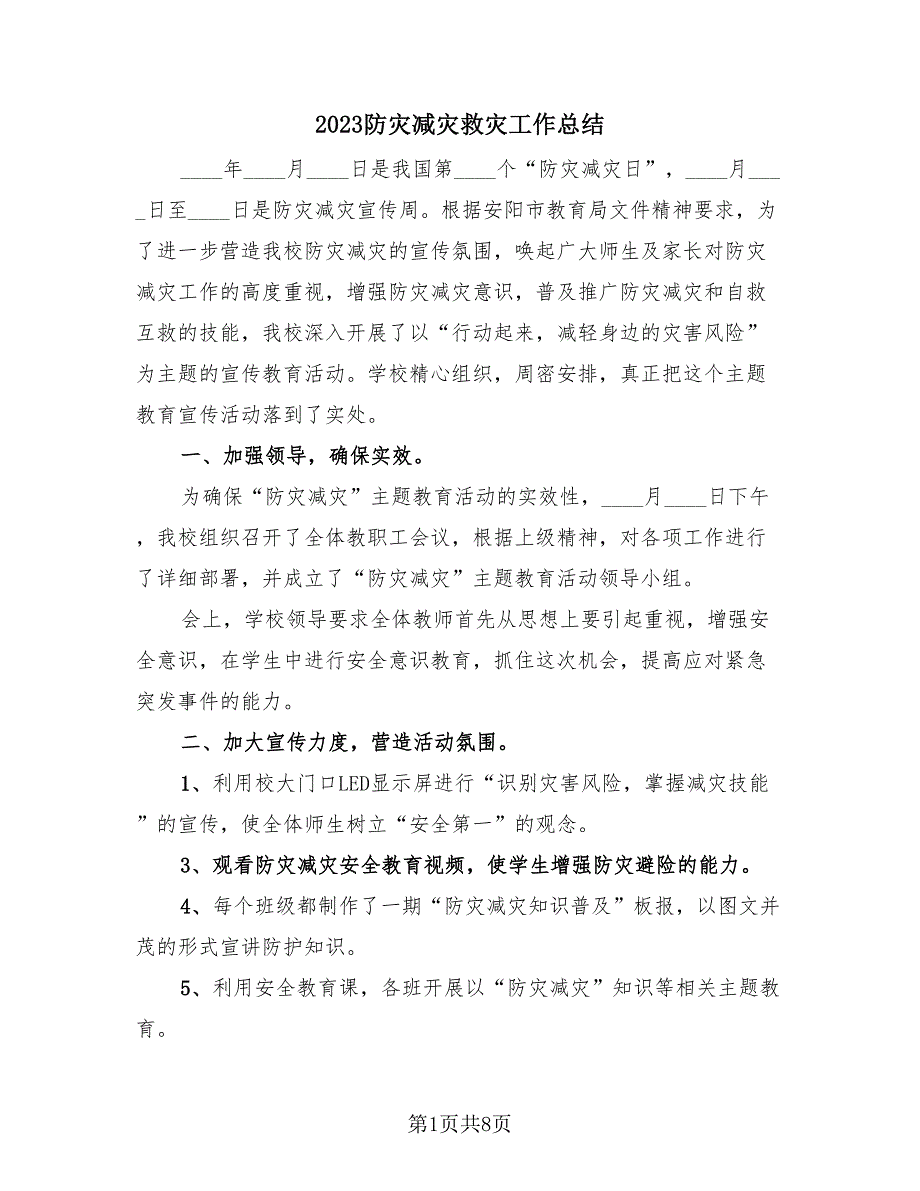 2023防灾减灾救灾工作总结
____年____月____日是我国第____个“防灾减灾日”，____月___
_日至____日是防灾减灾宣传周。根据安阳市教育局文件精神要求，为
了进一步营造我校防灾减灾的宣传氛围，唤起广大师生及家长对防灾
减灾工作的高度重视，增强防灾减灾意识，普及推广防灾减灾和自救
互救的技能，我校深入开展了以“行动起来，减轻身边的灾害风险”
为主题的宣传教育活动。学校精心组织，周密安排，真正把这个主题
教育宣传活动落到了实处。
一、加强领导，确保实效。
为确保“防灾减灾”主题教育活动的实效性，____月____日下午
，我校组织召开了全体教职工会议，根据上级精神，对各项工作进行
了详细部署，并成立了“防灾减灾”主题教育活动领导小组。
会上，学校领导要求全体教师首先从思想上要引起重视，增强安
全意识，在学生中进行安全意识教育，抓住这次机会，提高应对紧急
突发事件的能力。
二、加大宣传力度，营造活动氛围。
1、利用校大门口LED显示屏进行“识别灾害风险，掌握减灾技能
”的宣传，使全体师生树立“安全第一”的观念。
3、观看防灾减灾安全教育视频，使学生增强防灾避险的能力。
4、每个班级都制作了一期“防灾减灾知识普及”板报，以图文并
茂的形式宣讲防护知识。
5、利用安全教育课，各班开展以“防灾减灾”知识等相关主题教
育。
第1页共8页